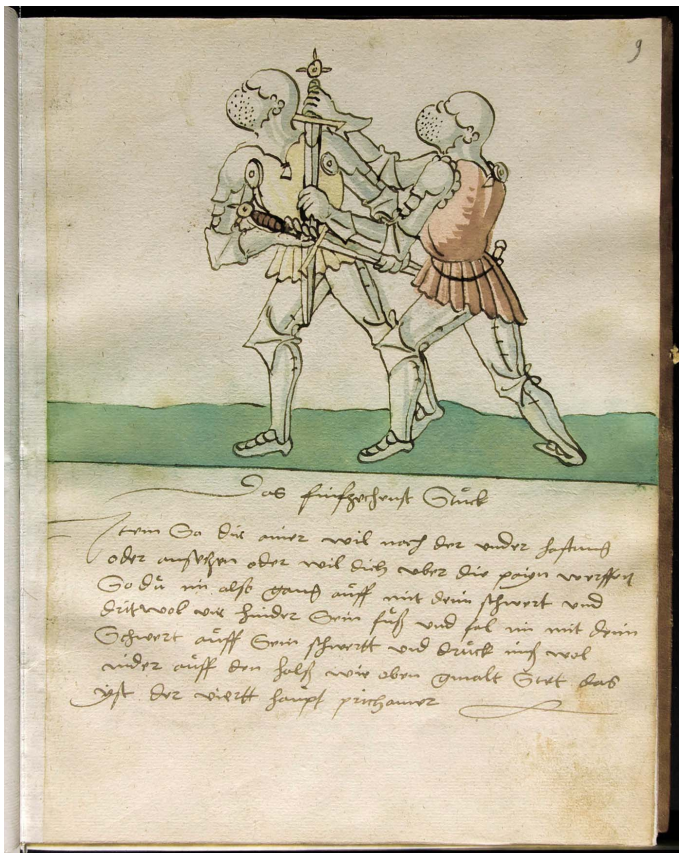 9
Das fünfzehenst Stuck
Item So dir ainer wil nach der under
oder oder wil dich uber die werffen
So du im also gang auff mit deim schwert und
drit wol hinder Sein fuß und fal im mit deim
Schwert auff Sein schwertt und druck wol
nider auff den halß wie oben gmalt Stet das
yst der viertt haupt